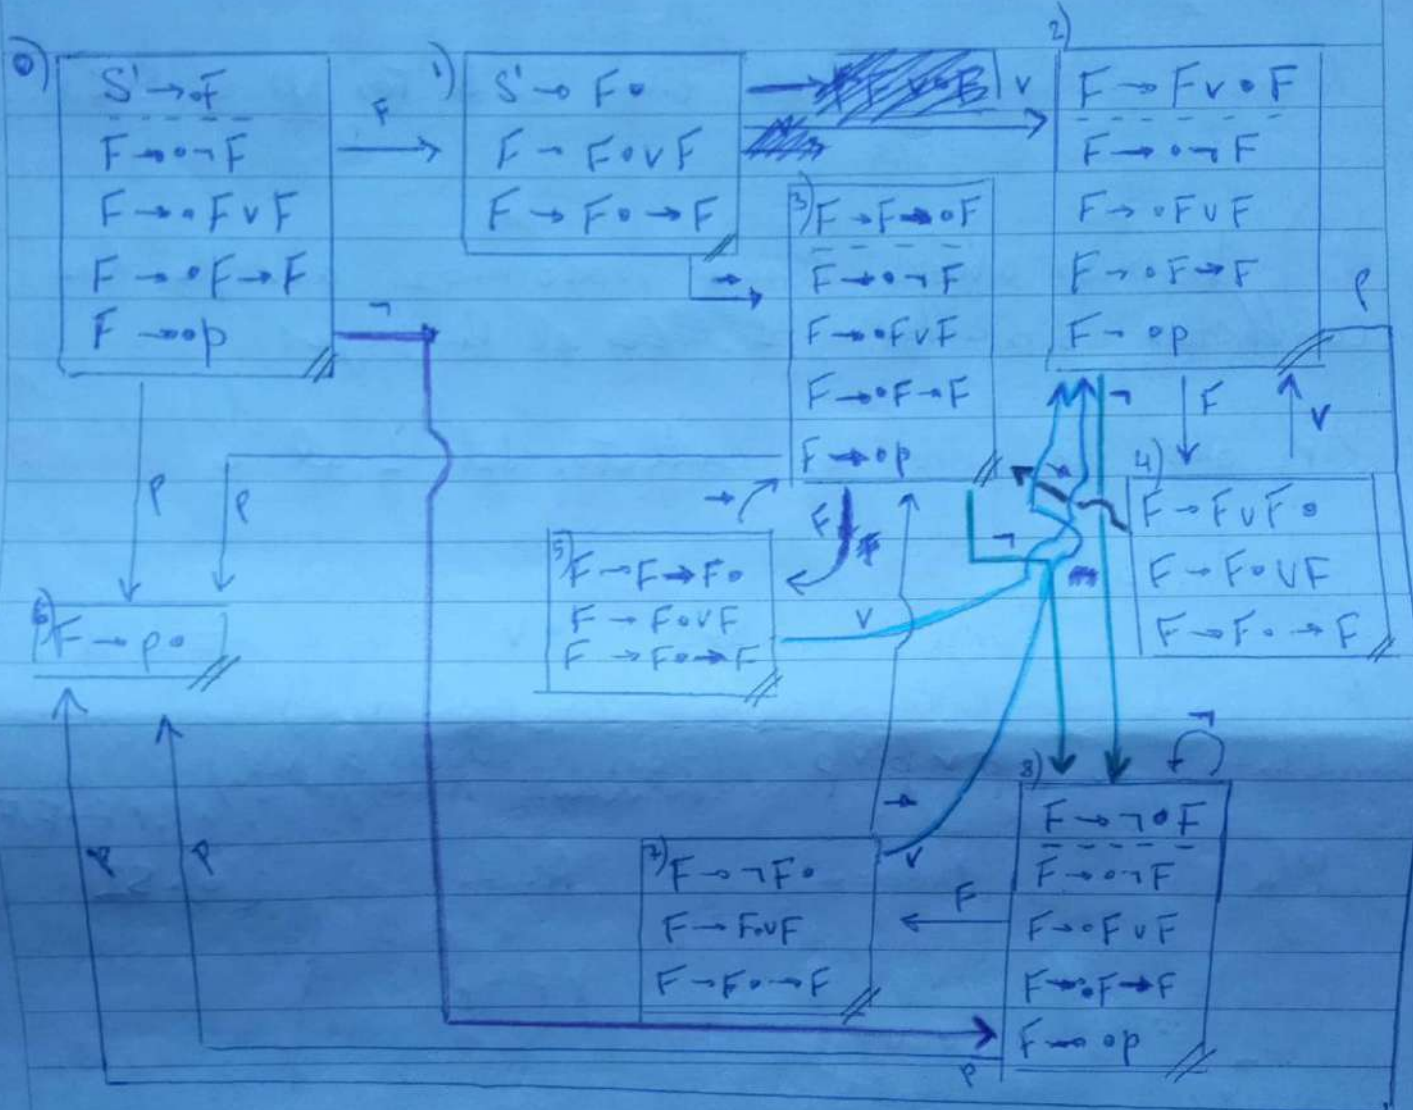 0)
S' → •F
F → •¬F
F → •F∨F
F → •F→F
F → •p
F
1)
S' → F•
F → F•∨F
F → F•→F
∨
2)
F → F∨•F
F → •¬F
F → •F∨F
F → •F→F
F → •p
→
3)
F → F→•F
F → •¬F
F → •F∨F
F → •F→F
F → •p
¬
p
p
F
∨
p
4)
F → F∨F•
F → F•∨F
F → F•→F
¬
→
F
→
5)
F → F→F•
F → F•∨F
F → F•→F
¬
∨
6)
F → p•
p
p
7)
F → ¬F•
F → F•∨F
F → F•→F
→
∨
F
8)
F → ¬•F
F → •¬F
F → •F∨F
F → •F→F
F → •p
¬
p